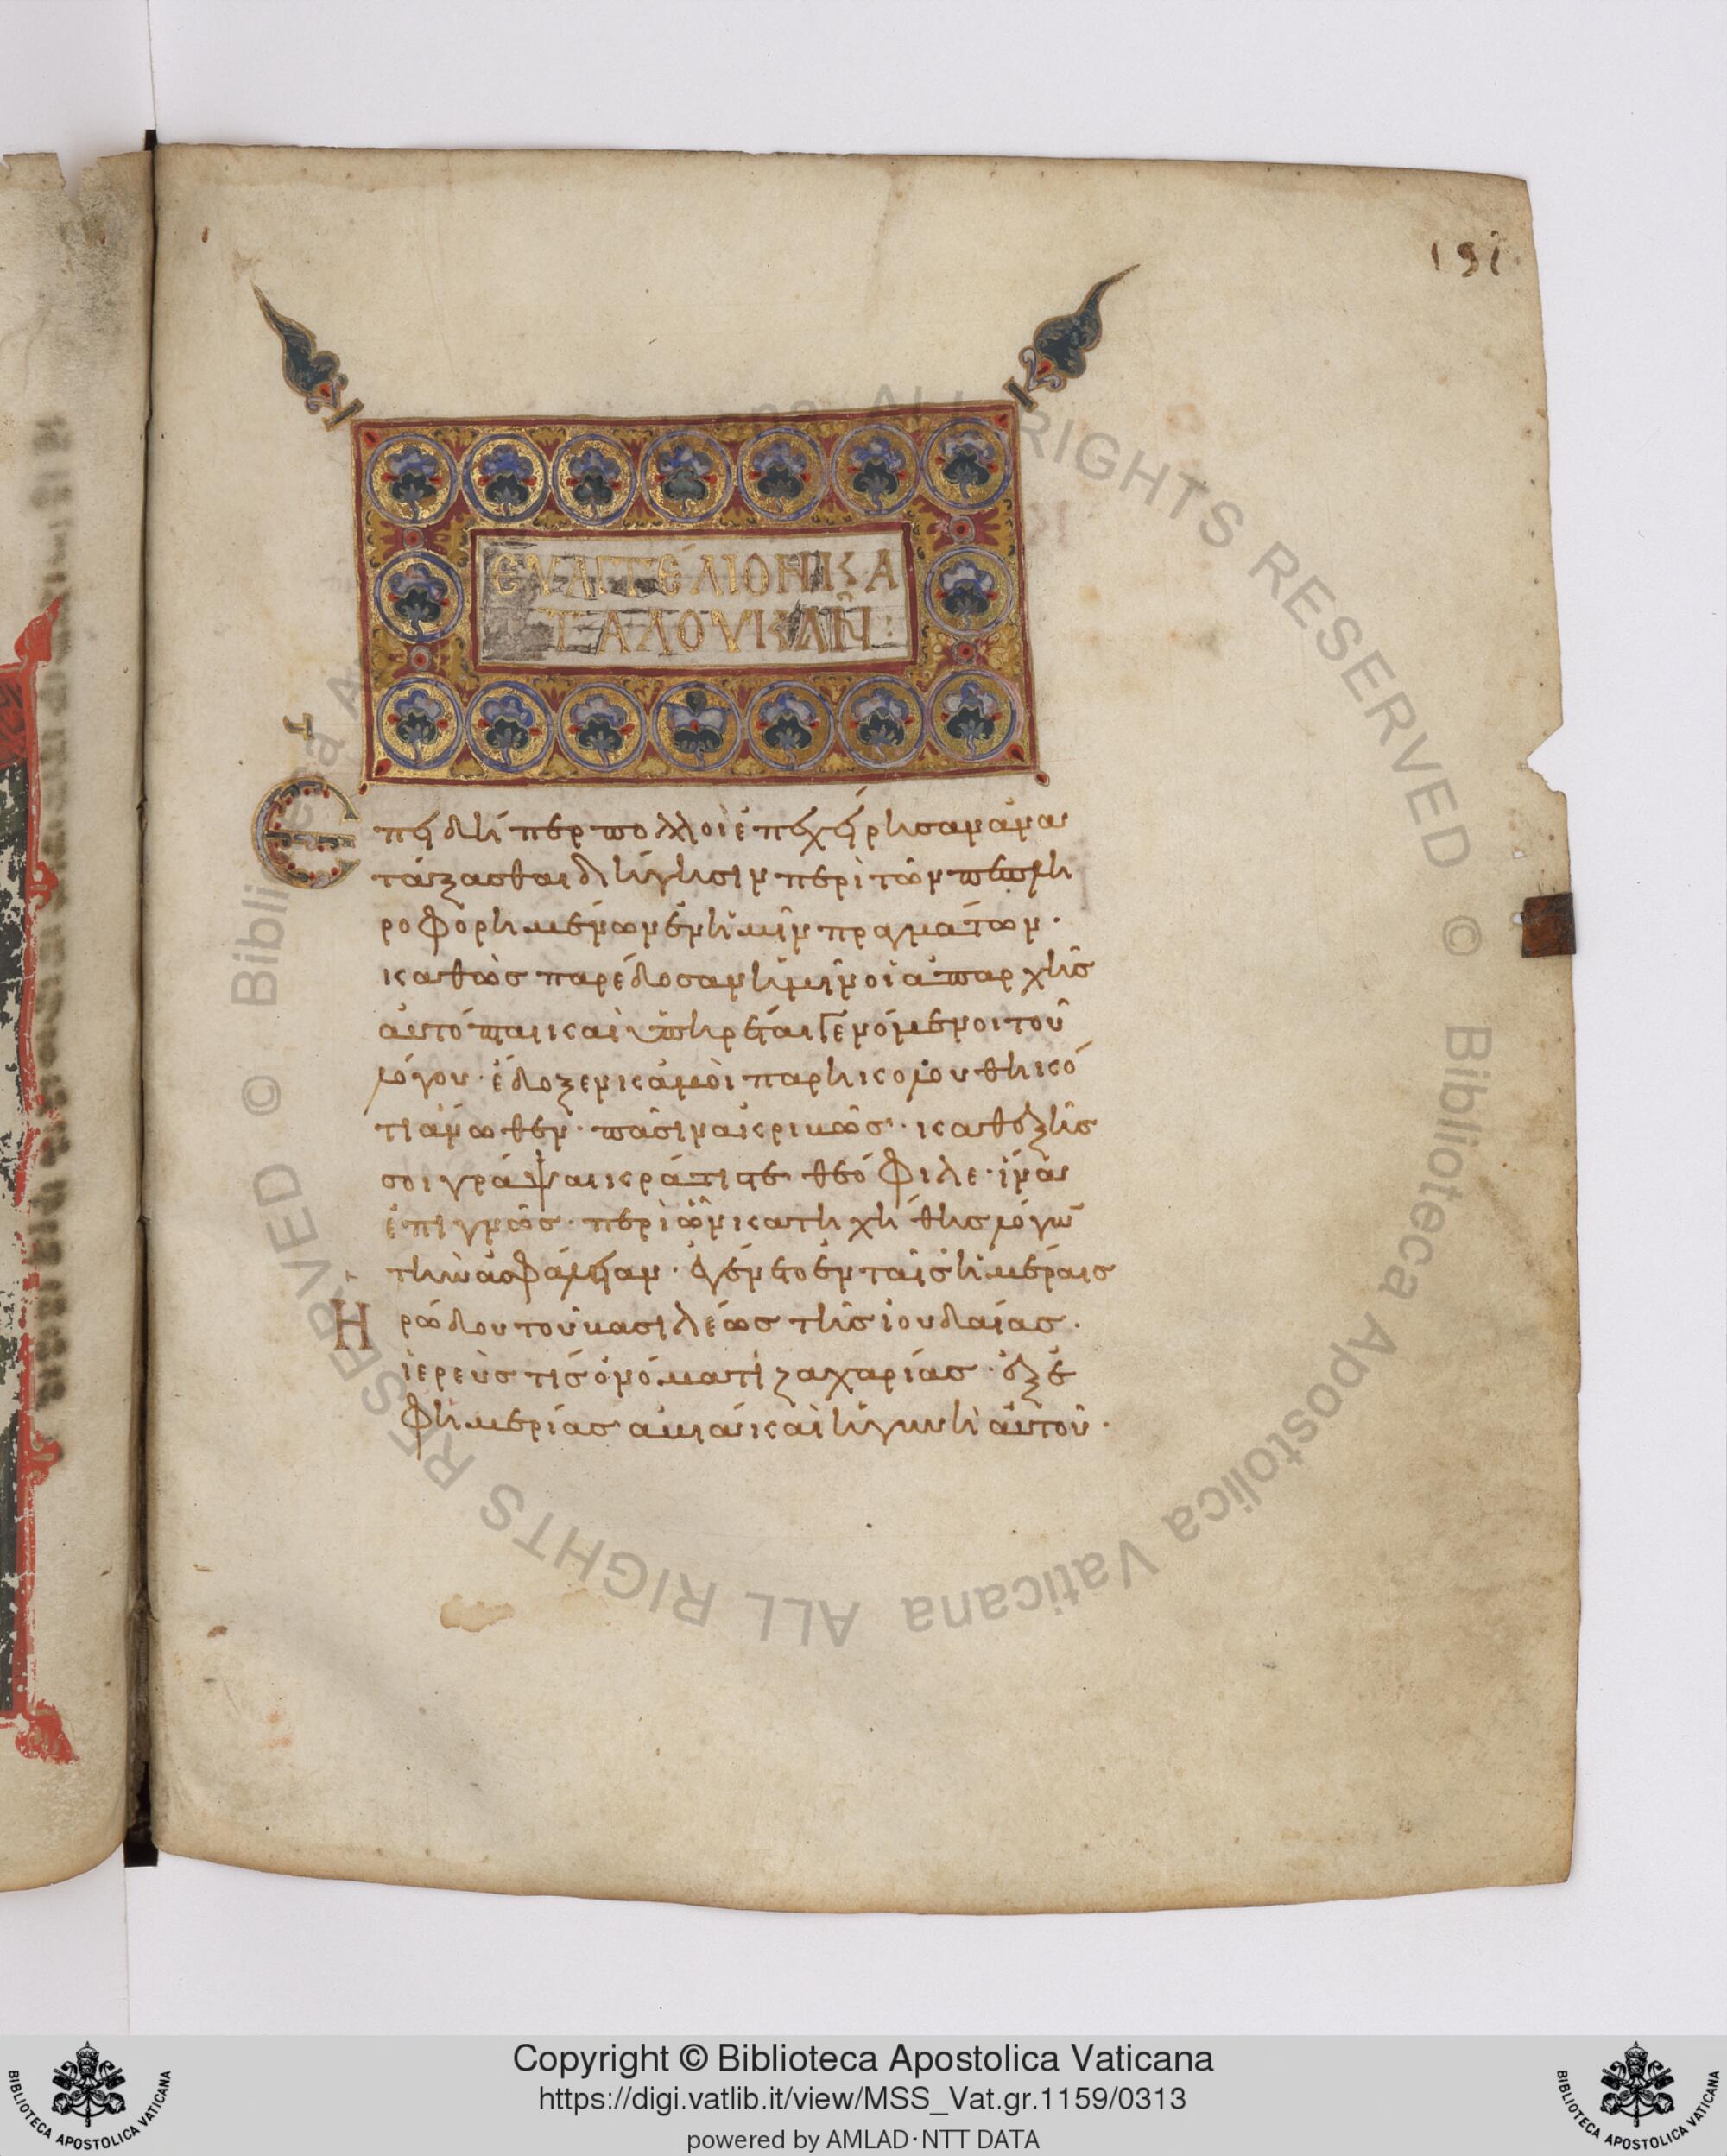 151
ΕΥΑΓΓΕΛΙΟΝ ΚΑ
ΤΑ ΛΟΥΚΑΝ:
Ἐπειδήπερ πολλοὶ ἐπεχείρησαν ἀνα
τάξασθαι διήγησιν περὶ τῶν πεπλη
ροφορημένων ἐν ἡμῖν πραγμάτων·
καθὼς παρέδοσαν ἡμῖν οἱ ἀπαρχῆς
αὐτόπται καὶ ὑπηρέται γενόμενοι τοῦ
λόγου· ἔδοξεν κἀμοὶ παρηκολουθηκό
τι ἄνωθεν· πᾶσιν ἀκριβῶς· καθεξῆς
σοι γράψαι κράτιστε θεόφιλε· ἵνα
ἐπιγνῶς· περὶ ὧν κατηχήθης λόγων
τὴν ἀσφάλειαν· ἐγένετο ἐν ταῖς ἡμέραις
Ἡρώδου τοῦ βασιλέως τῆς ἰουδαίας·
ἱερεύς τις ὀνόματι ζαχαρίας· ἐξ ἐ
φημερίας ἀβιά· καὶ ἡ γυνὴ αὐτοῦ·
© Biblioteca Apostolica Vaticana ALL RIGHTS RESERVED © Biblioteca Apostolica Vaticana ALL RIGHTS RESERVED
Copyright © Biblioteca Apostolica Vaticana
https://digi.vatlib.it/view/MSS_Vat.gr.1159/0313
powered by AMLAD·NTT DATA
BIBLIOTECA APOSTOLICA VATICANA
BIBLIOTECA APOSTOLICA VATICANA